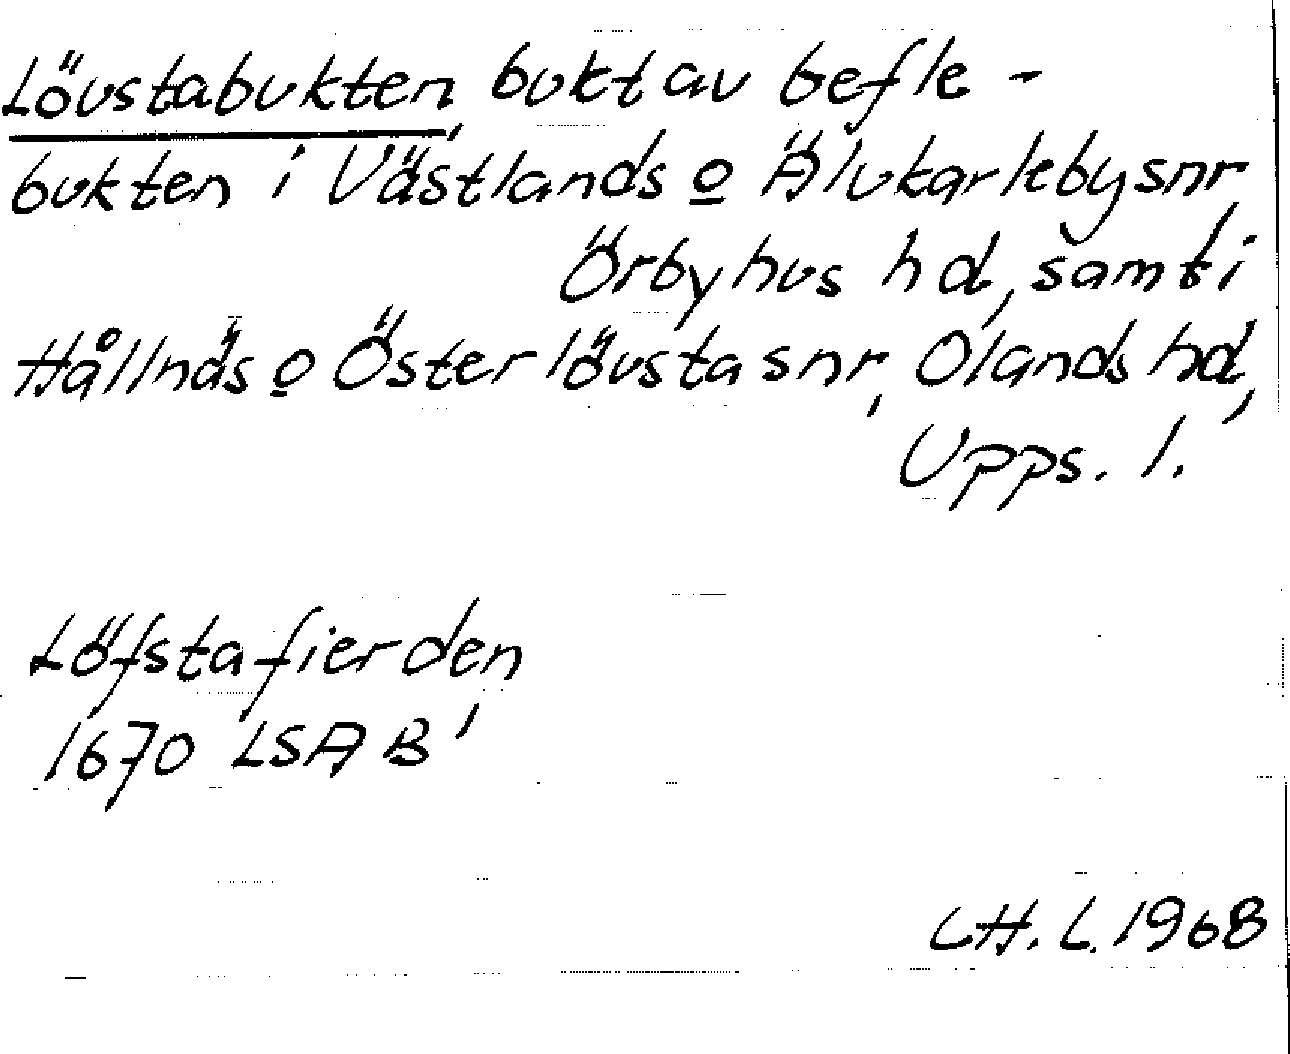 Lövstabukten, bukt av Gefle-
bukten i Västlands o Älvkarleby snr,
Örbyhus hd, samt i
Hållnäs o Österlövsta snr, Olands hd,
Upps. l.
Löfstafierden
1670 LSA B'
H. L. 1968